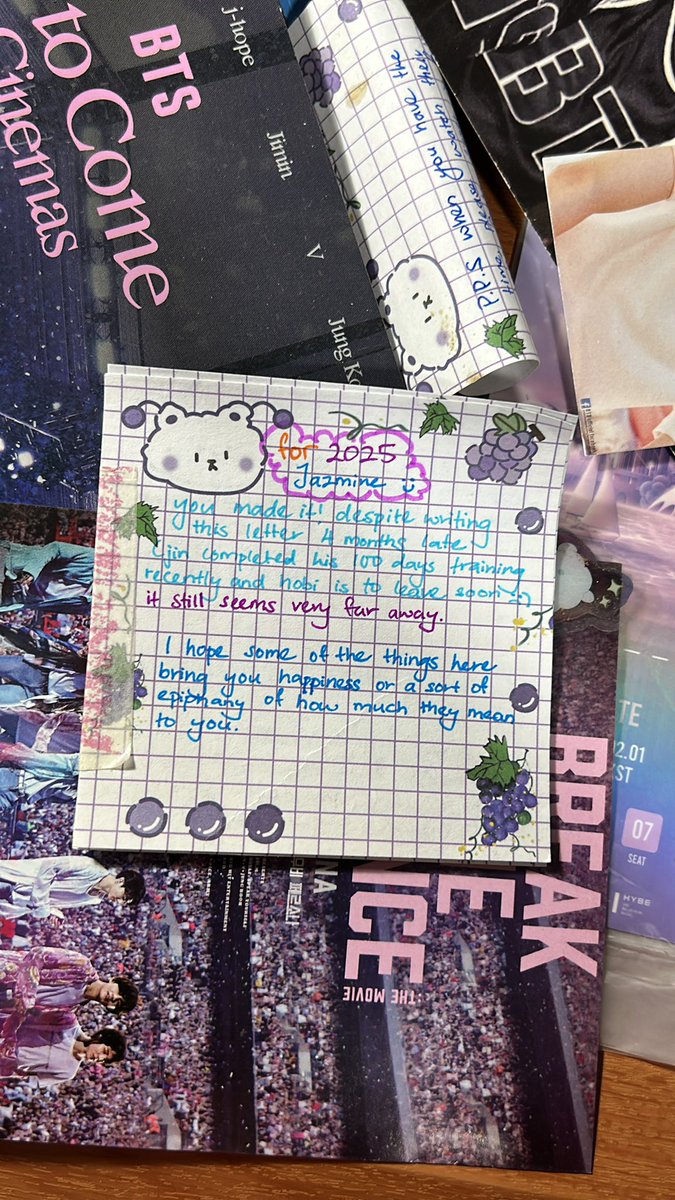 BTS
to Come
Cinemas
j-hope
Jimin
V
Jung Ko
P.P.S when you have the
time, please watch their
BT
for 2025
Jazmine :)
you made it! despite writing
this letter 4 months late
(jin completed his 100 days training
recently and hobi is to leave soon :')
it still seems very far away.
I hope some of the things here
bring you happiness or a sort of
epiphany of how much they mean
to you.
TE
2.01
ST
07
SEAT
HYBE
BREAK
E
ICE
: THE MOVIE
NA